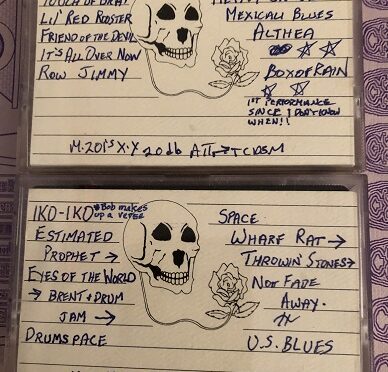 TOUCH OF GRAY
LIL' RED ROOSTER
FRIEND OF THE DEVIL
IT'S ALL OVER NOW
ROW JIMMY
MEXICALI BLUES
ALTHEA
BOX OF RAIN
1ST PERFORMANCE
SINCE I DON'T KNOW
WHEN!!
M-201'S X-Y 20db ATT→TCD5M
IKO-IKO *Bob makes
up a verse
ESTIMATED
PROPHET →
EYES OF THE WORLD
→ BRENT + DRUM
JAM →
DRUMSPACE
SPACE
WHARF RAT →
THROWN STONES→
NOT FADE
AWAY.
U.S. BLUES